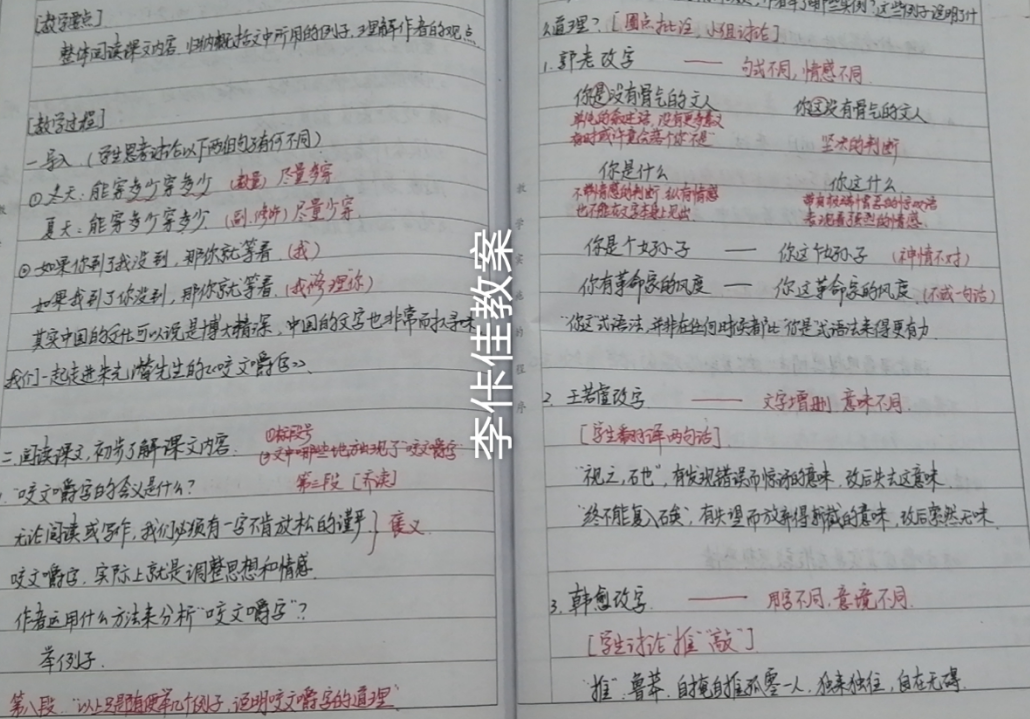 [教学重点]
整体阅读课文内容,归纳概括文中所用的例子,理解作者的观点.
[教学过程]
一 导入.(学生思考讨论以下两组句子有何不同)
①冬天:能穿多少穿多少 (数量) 尽量多穿
夏天:能穿多少穿多少 尽量少穿.
②如果你到了我没到,那你就等着.(我)
如果我到了你没到,那你就等着.(我修理你)
其实中国的文化可以说是博大精深,中国的文字也非常耐人寻味
我们一起走进朱光潜先生的《咬文嚼字》.
二.阅读课文,初步了解课文内容.
①标段号
②文中哪些地方出现了"咬文嚼字
"咬文嚼字的含义是什么? 第三段 [齐读]
无论阅读或写作,我们必须有一字不肯放松的谨严
咬文嚼字.实际上就是调整思想和情感.
作者运用什么方法来分析"咬文嚼字"?
举例子.
第八段."以上只是随便举几个例子,说明咬文嚼字的道理"
这些例子说明了什
么道理? [圈点批注,小组讨论]
1.郭老改字 —— 句式不同,情感不同
你是没有骨气的文人 你这没有骨气的文人
坚决的判断
你是什么 你这什么
不带情感的判断.纵有情感
你是个好孙子 —— 你这个好孙子 (神情不对)
你有革命家的风度 — 你这革命家的风度 (不成一句话)
"你这"式语法,并非在任何时候都比"你是"式语法来得更有力.
2.王若虚改字 —— 文字增删 意味不同.
[学生翻译两句话]
"视之,石也",有发现错误而惊讶的意味,改后失去这意味.
"终不能复入石矣",有失望而放弃得新诚的意味,改后索然无味.
3.韩愈改字 —— 用字不同.意境不同.
[学生讨论"推""敲"]
"推".鲁莽.自掩自推.孤零一人.独来独往,自在无碍.
李佧佳教案